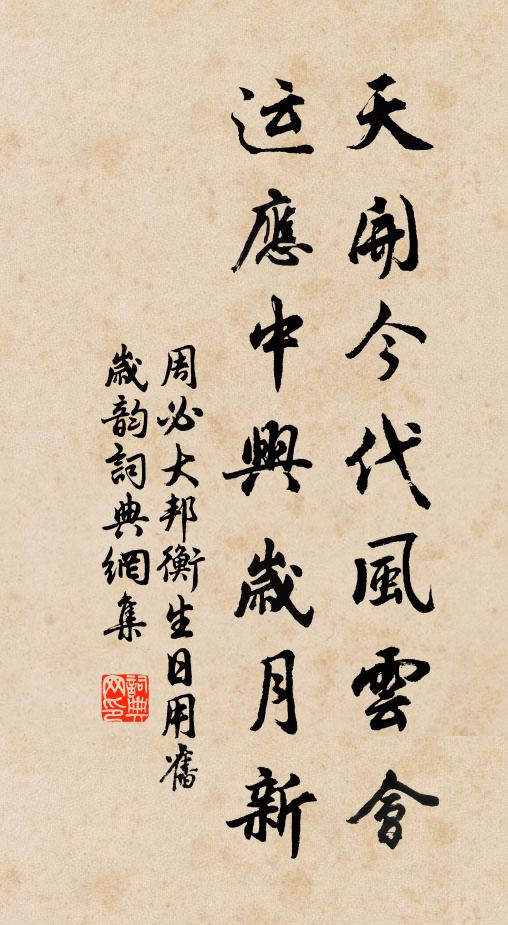 天開今代風雲會
运應中興歲月新
周必大邦衡生日用舊
歲韵詞典網集
詞典
网印